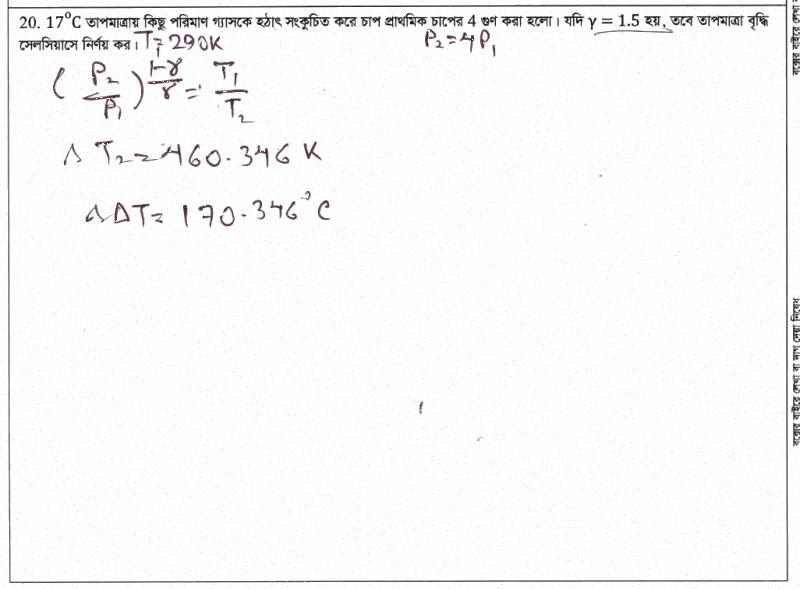 20. 17°C তাপমাত্রায় কিছু পরিমাণ গ্যাসকে হঠাৎ সংকুচিত করে চাপ প্রাথমিক চাপের 4 গুণ করা হলো। যদি γ = 1.5 হয়, তবে তাপমাত্রা বৃদ্ধি
সেলসিয়াসে নির্ণয় কর। T₁ = 290K P₂ = 4P₁
(P₂/P₁)^((1-γ)/γ) = T₁/T₂
∴ T₂ = 460.346 K
∴ ΔT = 170.346°C
বাক্সের বাইরে লেখা বা দাগ দেয়া নিষেধ